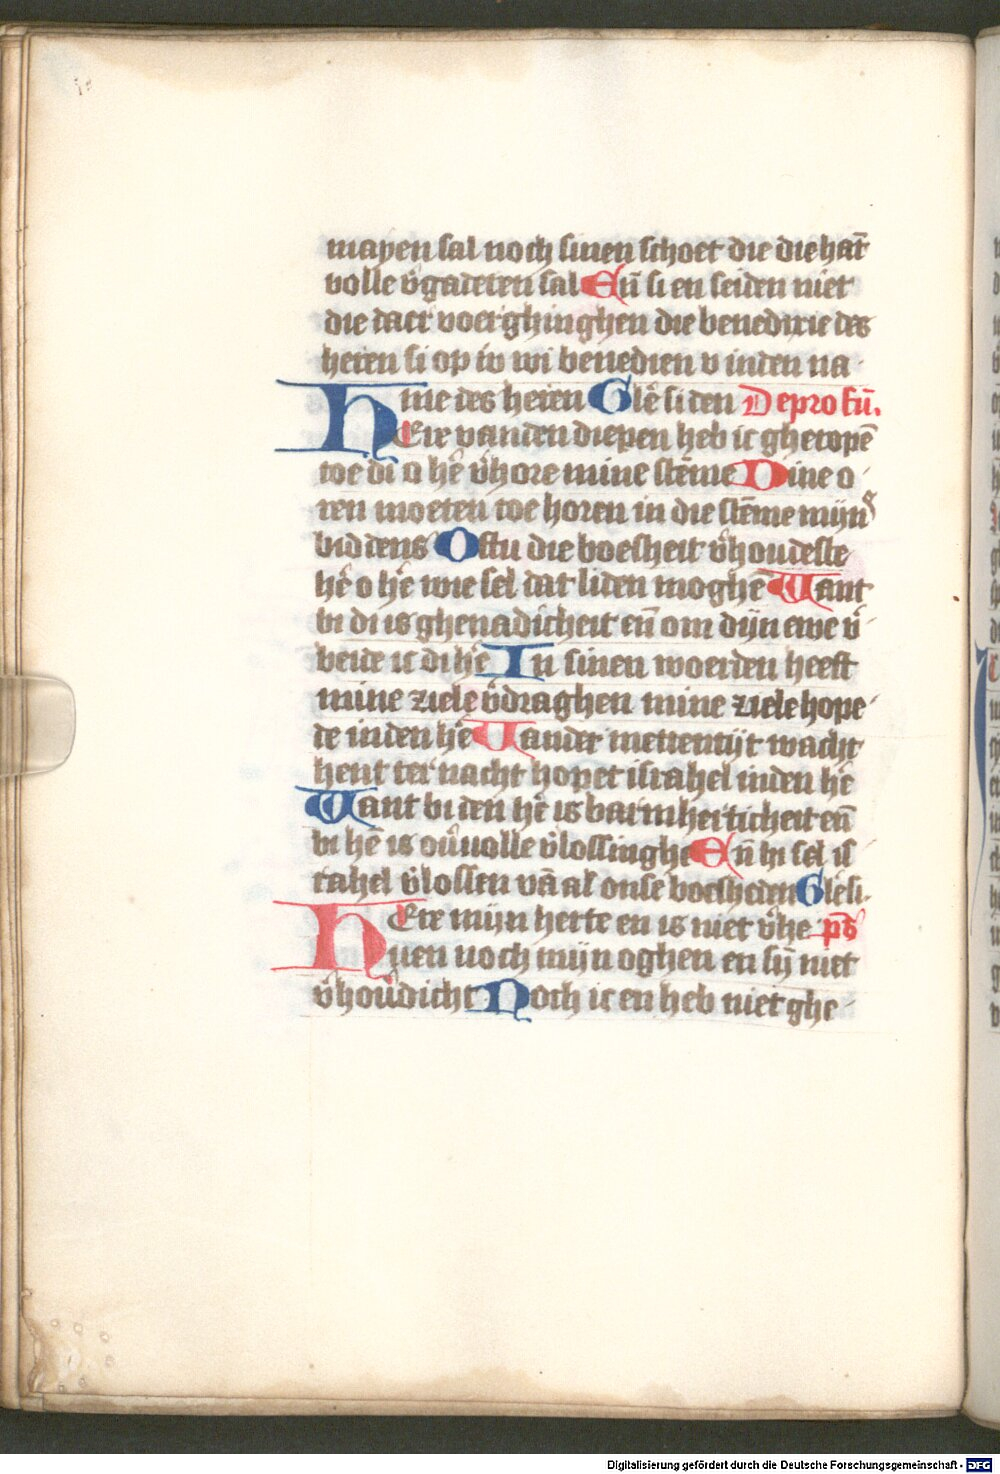 mayen sal noch sinen schoet die die hāt
volle v̄gaderen sal En̄ si en seiden niet
die daer voerghinghen die benedixie des
heren si op iv wi benedien v inden na
me des heren Glē si den De profū.
HEre vanden diepen heb ic gheropē
toe di o hē v̄hore mine stēme Dine o
ren moeten toe horen in die stēme mijns
biddens Ofstu die boesheit v̄houdeste
hē o hē wie sel dat liden moghē Want
bi di is ghenadicheit en̄ om dijn ewe v̄
beide ic di hē In sinen woerden heeft
mine ziele v̄draghen mine ziele hope
de inden hē Vander mettentijt wacht
hent ter nacht hopet israhel inden hē
Want bi den hē is barmherticheit en̄
bi hē is ouv̄olle v̄lossinghe En̄ hi sel is
rahel v̄lossen vā al onse boesheden Glē si
HEre mijn herte en is niet v̄he ps̄
uen noch mijn oghen en sij̄ niet
v̄houdicht Noch ic en heb niet ghe
Digitalisierung gefördert durch die Deutsche Forschungsgemeinschaft - DFG